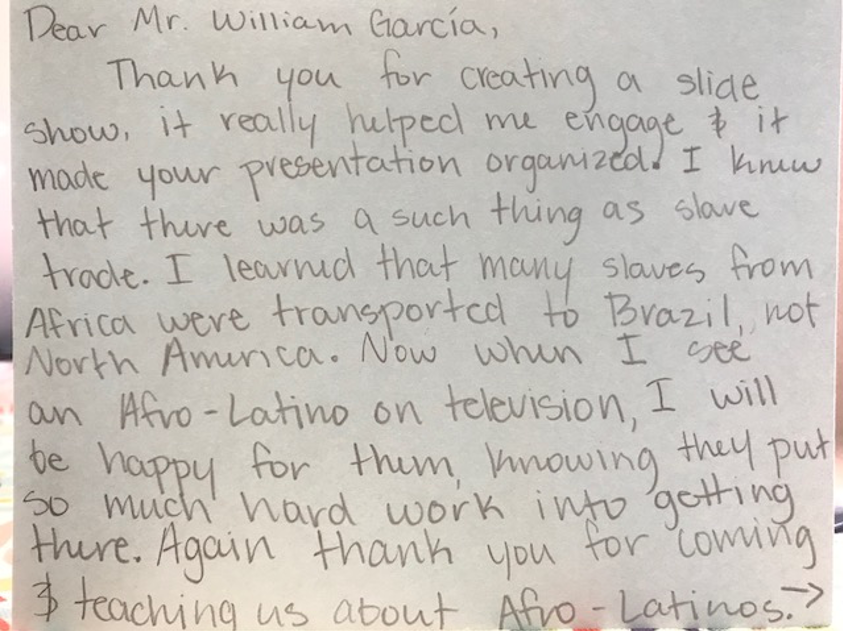 Dear Mr. William García,
Thank you for creating a slide
show, it really helped me engage & it
made your presentation organized. I knew
that there was a such thing as slave
trade. I learned that many slaves from
Africa were transported to Brazil, not
North America. Now when I see
an Afro-Latino on television, I will
be happy for them, knowing they put
so much hard work into getting
there. Again thank you for coming
& teaching us about Afro-Latinos.→